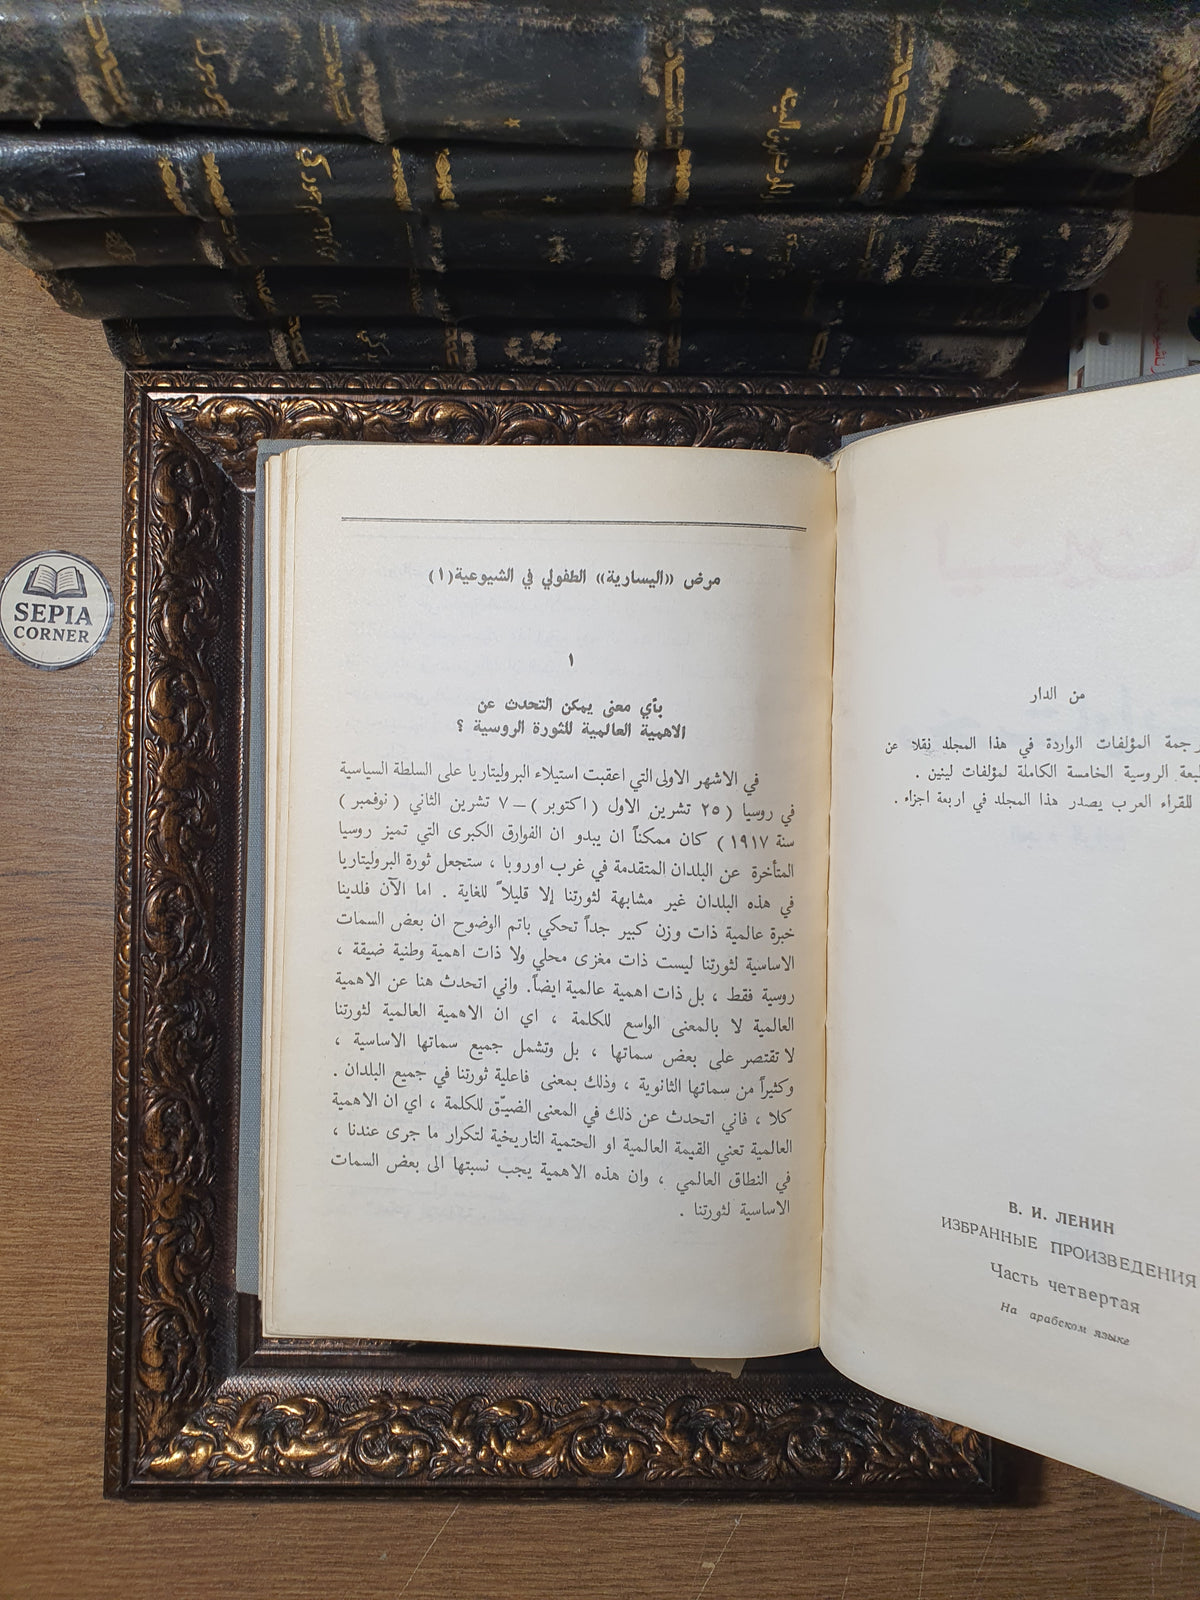 SEPIA
CORNER
من الدار
ترجمة المؤلفات الواردة في هذا المجلد نقلا عن
الروسية الخامسة الكاملة لمؤلفات لينين .
للقراء العرب يصدر هذا المجلد في اربعة اجزاء .
В. И. ЛЕНИН
ИЗБРАННЫЕ ПРОИЗВЕДЕНИЯ
Часть четвертая
На арабском языке
مرض «اليسارية» الطفولي في الشيوعية(١)
١
بأي معنى يمكن التحدث عن
الاهمية العالمية للثورة الروسية ؟
في الاشهر الاولى التي اعقبت استيلاء البروليتاريا على السلطة السياسية
في روسيا ( ٢٥ تشرين الاول ( اكتوبر ) – ٧ تشرين الثاني ( نوفمبر )
سنة ١٩١٧ ) كان ممكناً ان يبدو ان الفوارق الكبرى التي تميز روسيا
المتأخرة عن البلدان المتقدمة في غرب اوروبا ، ستجعل ثورة البروليتاريا
في هذه البلدان غير مشابهة لثورتنا إلا قليلاً للغاية . اما الآن فلدينا
خبرة عالمية ذات وزن كبير جداً تحكي باتم الوضوح ان بعض السمات
الاساسية لثورتنا ليست ذات مغزى محلي ولا ذات اهمية وطنية ضيقة ،
روسية فقط ، بل ذات اهمية عالمية ايضاً. واني اتحدث هنا عن الاهمية
العالمية لا بالمعنى الواسع للكلمة ، اي ان الاهمية العالمية لثورتنا
لا تقتصر على بعض سماتها ، بل وتشمل جميع سماتها الاساسية ،
وكثيراً من سماتها الثانوية ، وذلك بمعنى فاعلية ثورتنا في جميع البلدان .
كلا ، فاني اتحدث عن ذلك في المعنى الضيّق للكلمة ، اي ان الاهمية
العالمية تعني القيمة العالمية او الحتمية التاريخية لتكرار ما جرى عندنا ،
في النطاق العالمي ، وان هذه الاهمية يجب نسبتها الى بعض السمات
الاساسية لثورتنا .